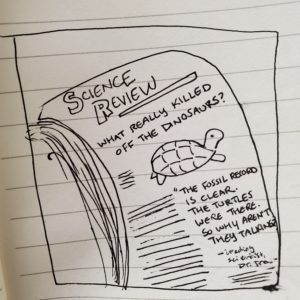 SCIENCE
REVIEW
WHAT REALLY KILLED
OFF THE DINOSAURS?
"THE FOSSIL RECORD
IS CLEAR.
THE TURTLES
WERE THERE.
SO WHY AREN'T
THEY TALKING?
- leading
scientist,